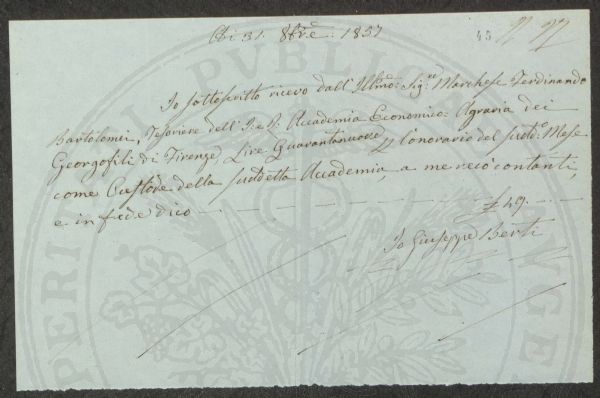 Adì 31. 8bre: 1837
45
Io sottoscritto ricevo dall'Illmo: Sigre Marchese Ferdinando
Bartolomei, Tesoriere dell'I. e R. Accademia Economico-Agraria dei
Georgofili di Firenze, Lire Quarantanove p l'onorario del sudto Mese
come Custode della suddetta Accademia, a me recò contanti,
e in fede dico £ 49.
Io Giuseppe Berti
PERI PVBLICAE